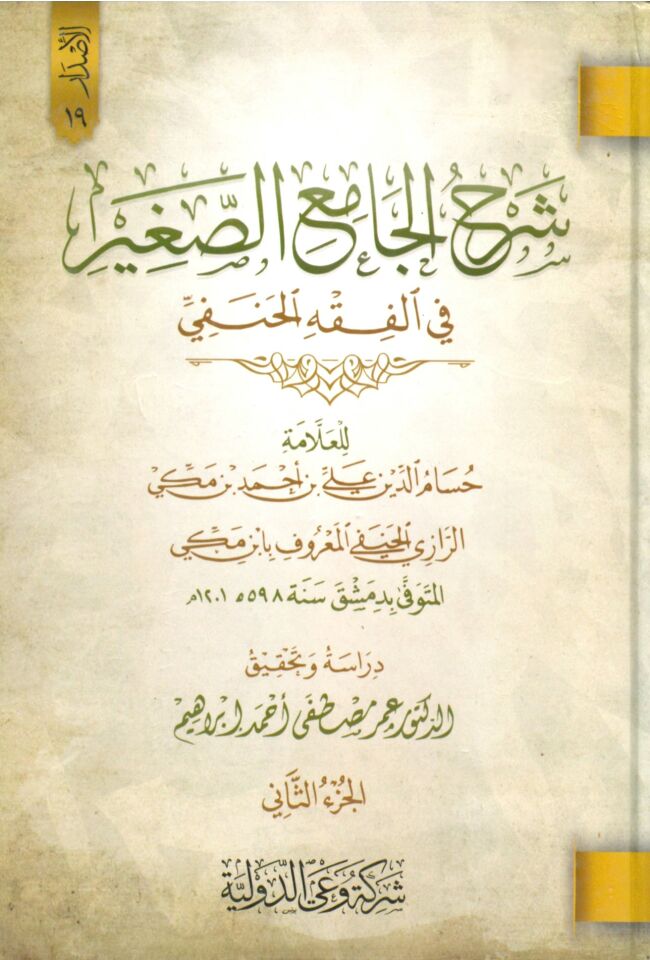 الإصدار ١٩
شَرْحُ الجَامِعِ الصَّغِيرِ
فِي الفِقْهِ الحَنَفِيِّ
لِلعَلَّامَةِ
حُسَامُ الدِّيْن عَلِيّ بْن أَحْمَد بْن مَكِّي
الرَّازِي الحَنَفِي المَعْرُوف بِابْن مَكِّي
المُتَوَفَّى بِدِمَشْقَ سَنَة ٥٩٨ ه ١٢٠١م
دِرَاسَةُ وَتَحْقِيْقُ
الدكتور عمر مصطفى أحمد إبراهيم
الجُزْءُ الثَّانِي
شركة وعي الدولية